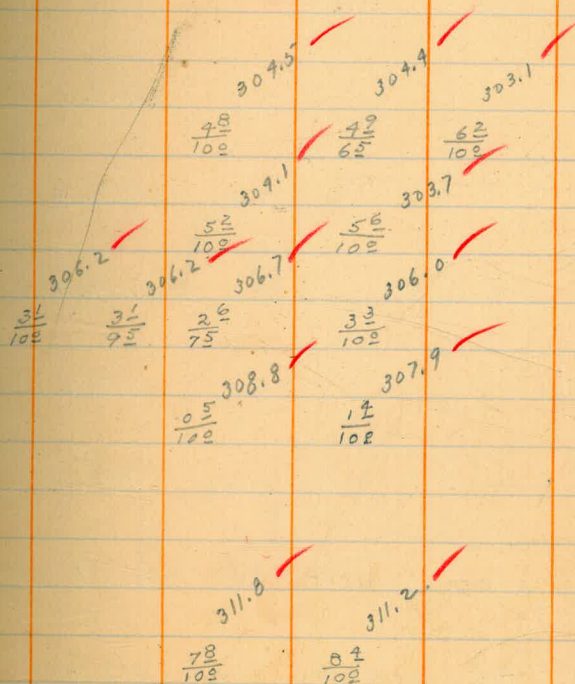 304.5 304.4 303.1
4 8/10 0 4 9/6 5 6 2/10 0
304.1 303.7
5 2/10 0 5 6/10 0
306.2 306.2 306.7 306.0
3 1/10 0 3 1/9 5 2 6/7 5 3 3/10 0
308.8 307.9
0 5/10 0 1 4/10 0
311.8 311.2
7 8/10 0 8 4/10 0